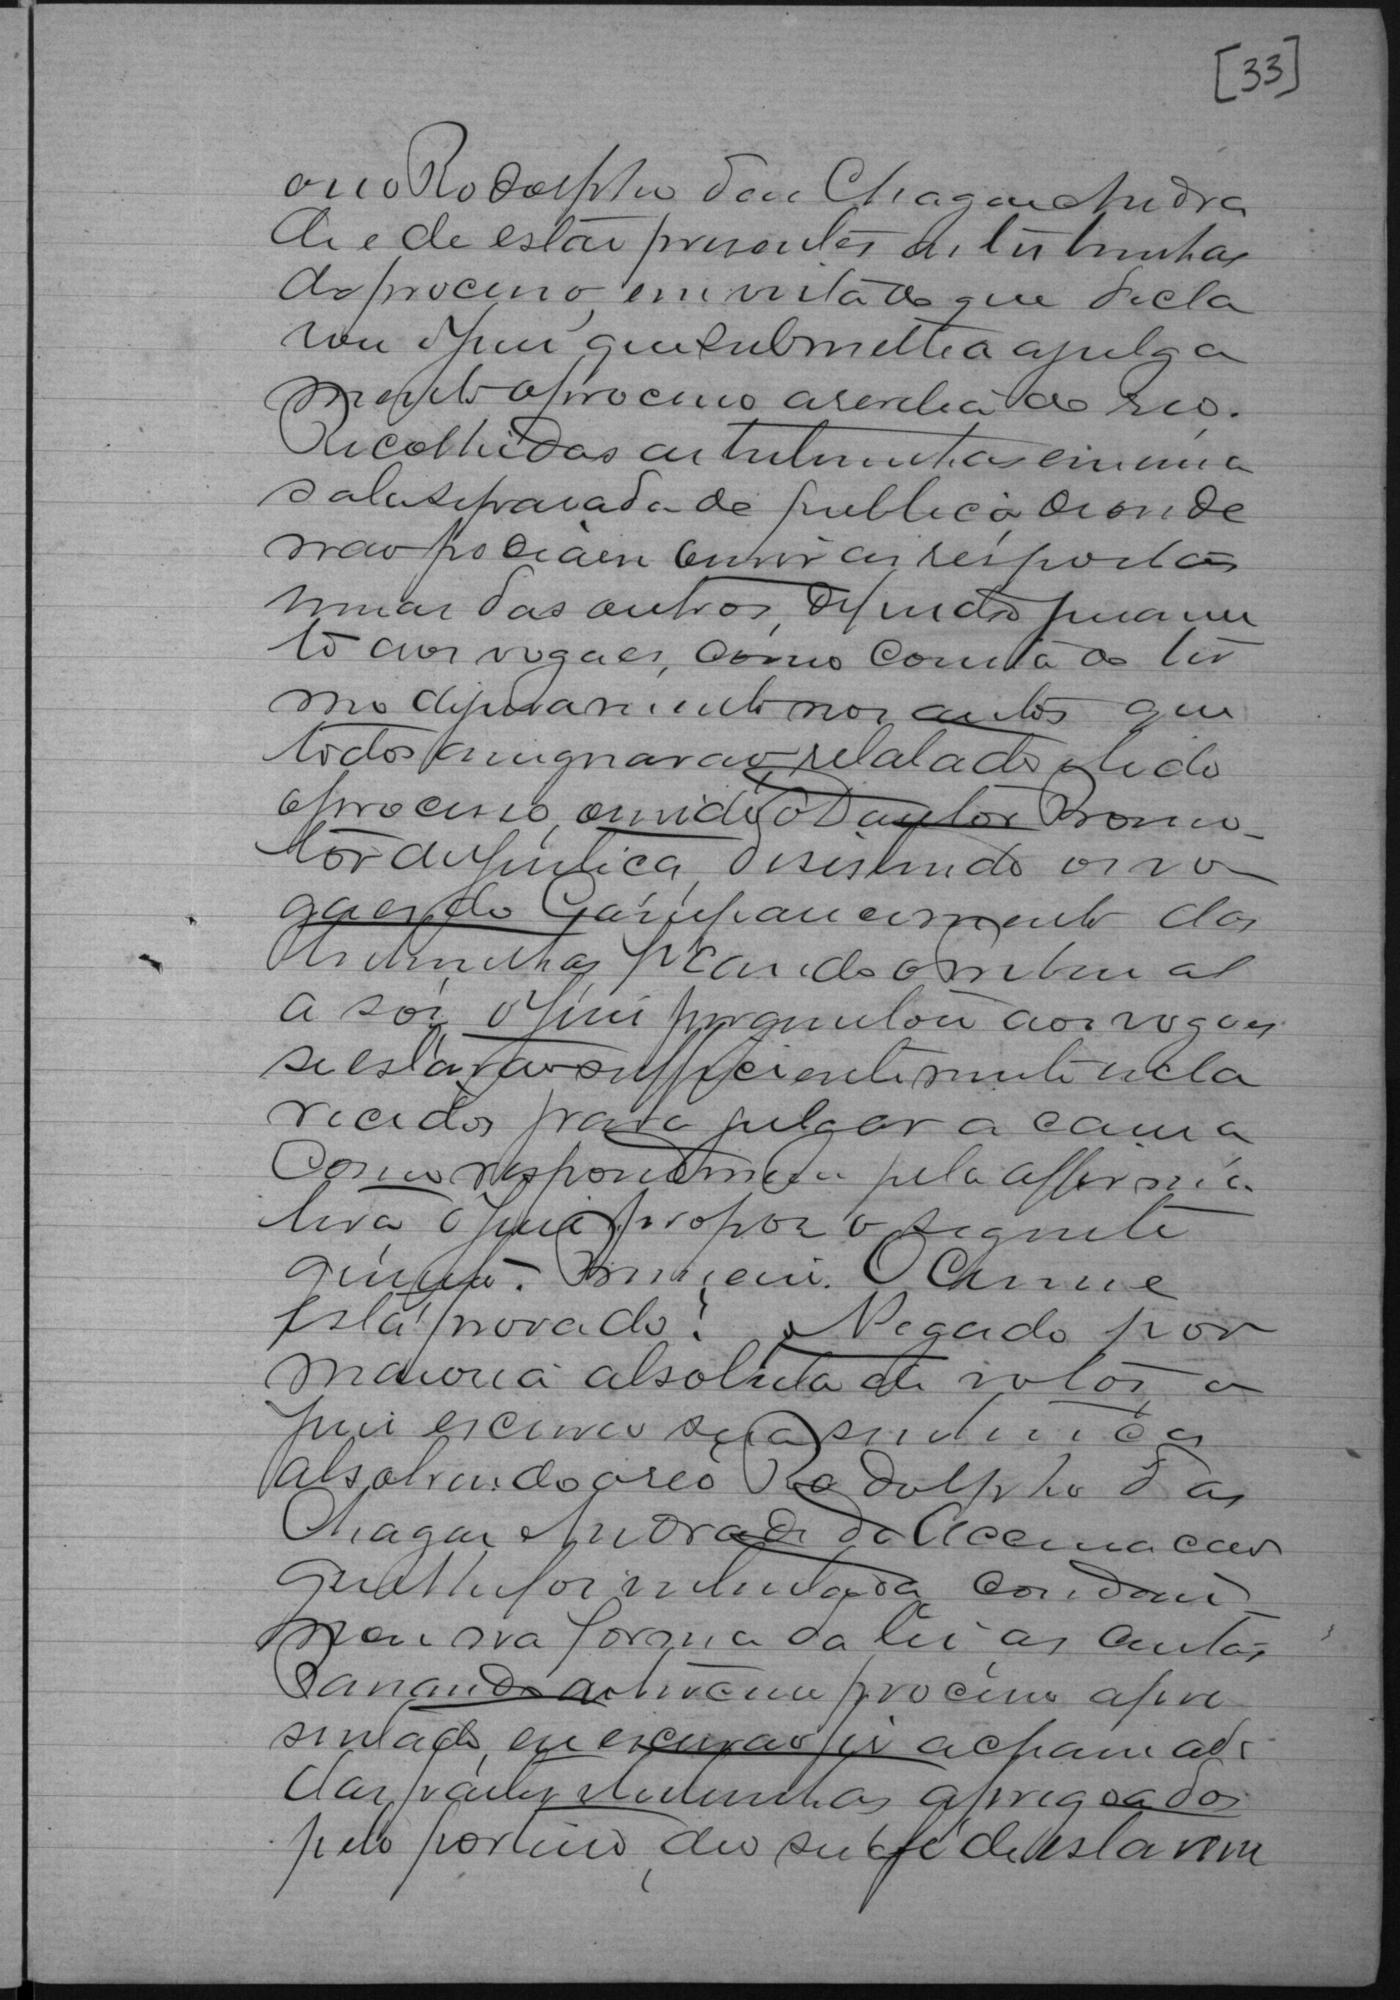 [33]
o reo Rodolpho das Chagas Andra
de e de estar presentes as testemunhas
do processo, em vista do que decla
rou o Juiz que submettia a julga
mento o processo a revelia do reo.
Recolhidas as testemunhas em uma
sala separada de publico d'onde
não podiam ouvir as respostas
umas das outras, depuserão peran
te aos vogaes, como consta do ter
mo depoimento nos autos que
todos assignarão, relatado e lido
o processo, ouvido o Doutor Promo-
tor de Justiça, desistindo os vo
gaes do comparecimento das
testemunhas ficando o Tribunal
a sós, o Juiz perguntou aos vogaes
se estavão sufficientemente escla
recidos para julgar a causa
Como responderam pela affirma
tiva, o Juiz propoz o seguinte
quisito. Primeiro. O Crime
está provado? Negado por
maioria absoluta de votos, o
juiz escreveu sua sentença
absolvendo o reo Rodolpho das
Chagas Andrade da accusação
que lhe foi intentada, condem
nou na forma da lei as custas
Passando ao terceiro processo apre
sentado, eu escrivão fiz a chamada
das partes e testemunhas apregoados
pelo porteiro, deu sua fé de estarem